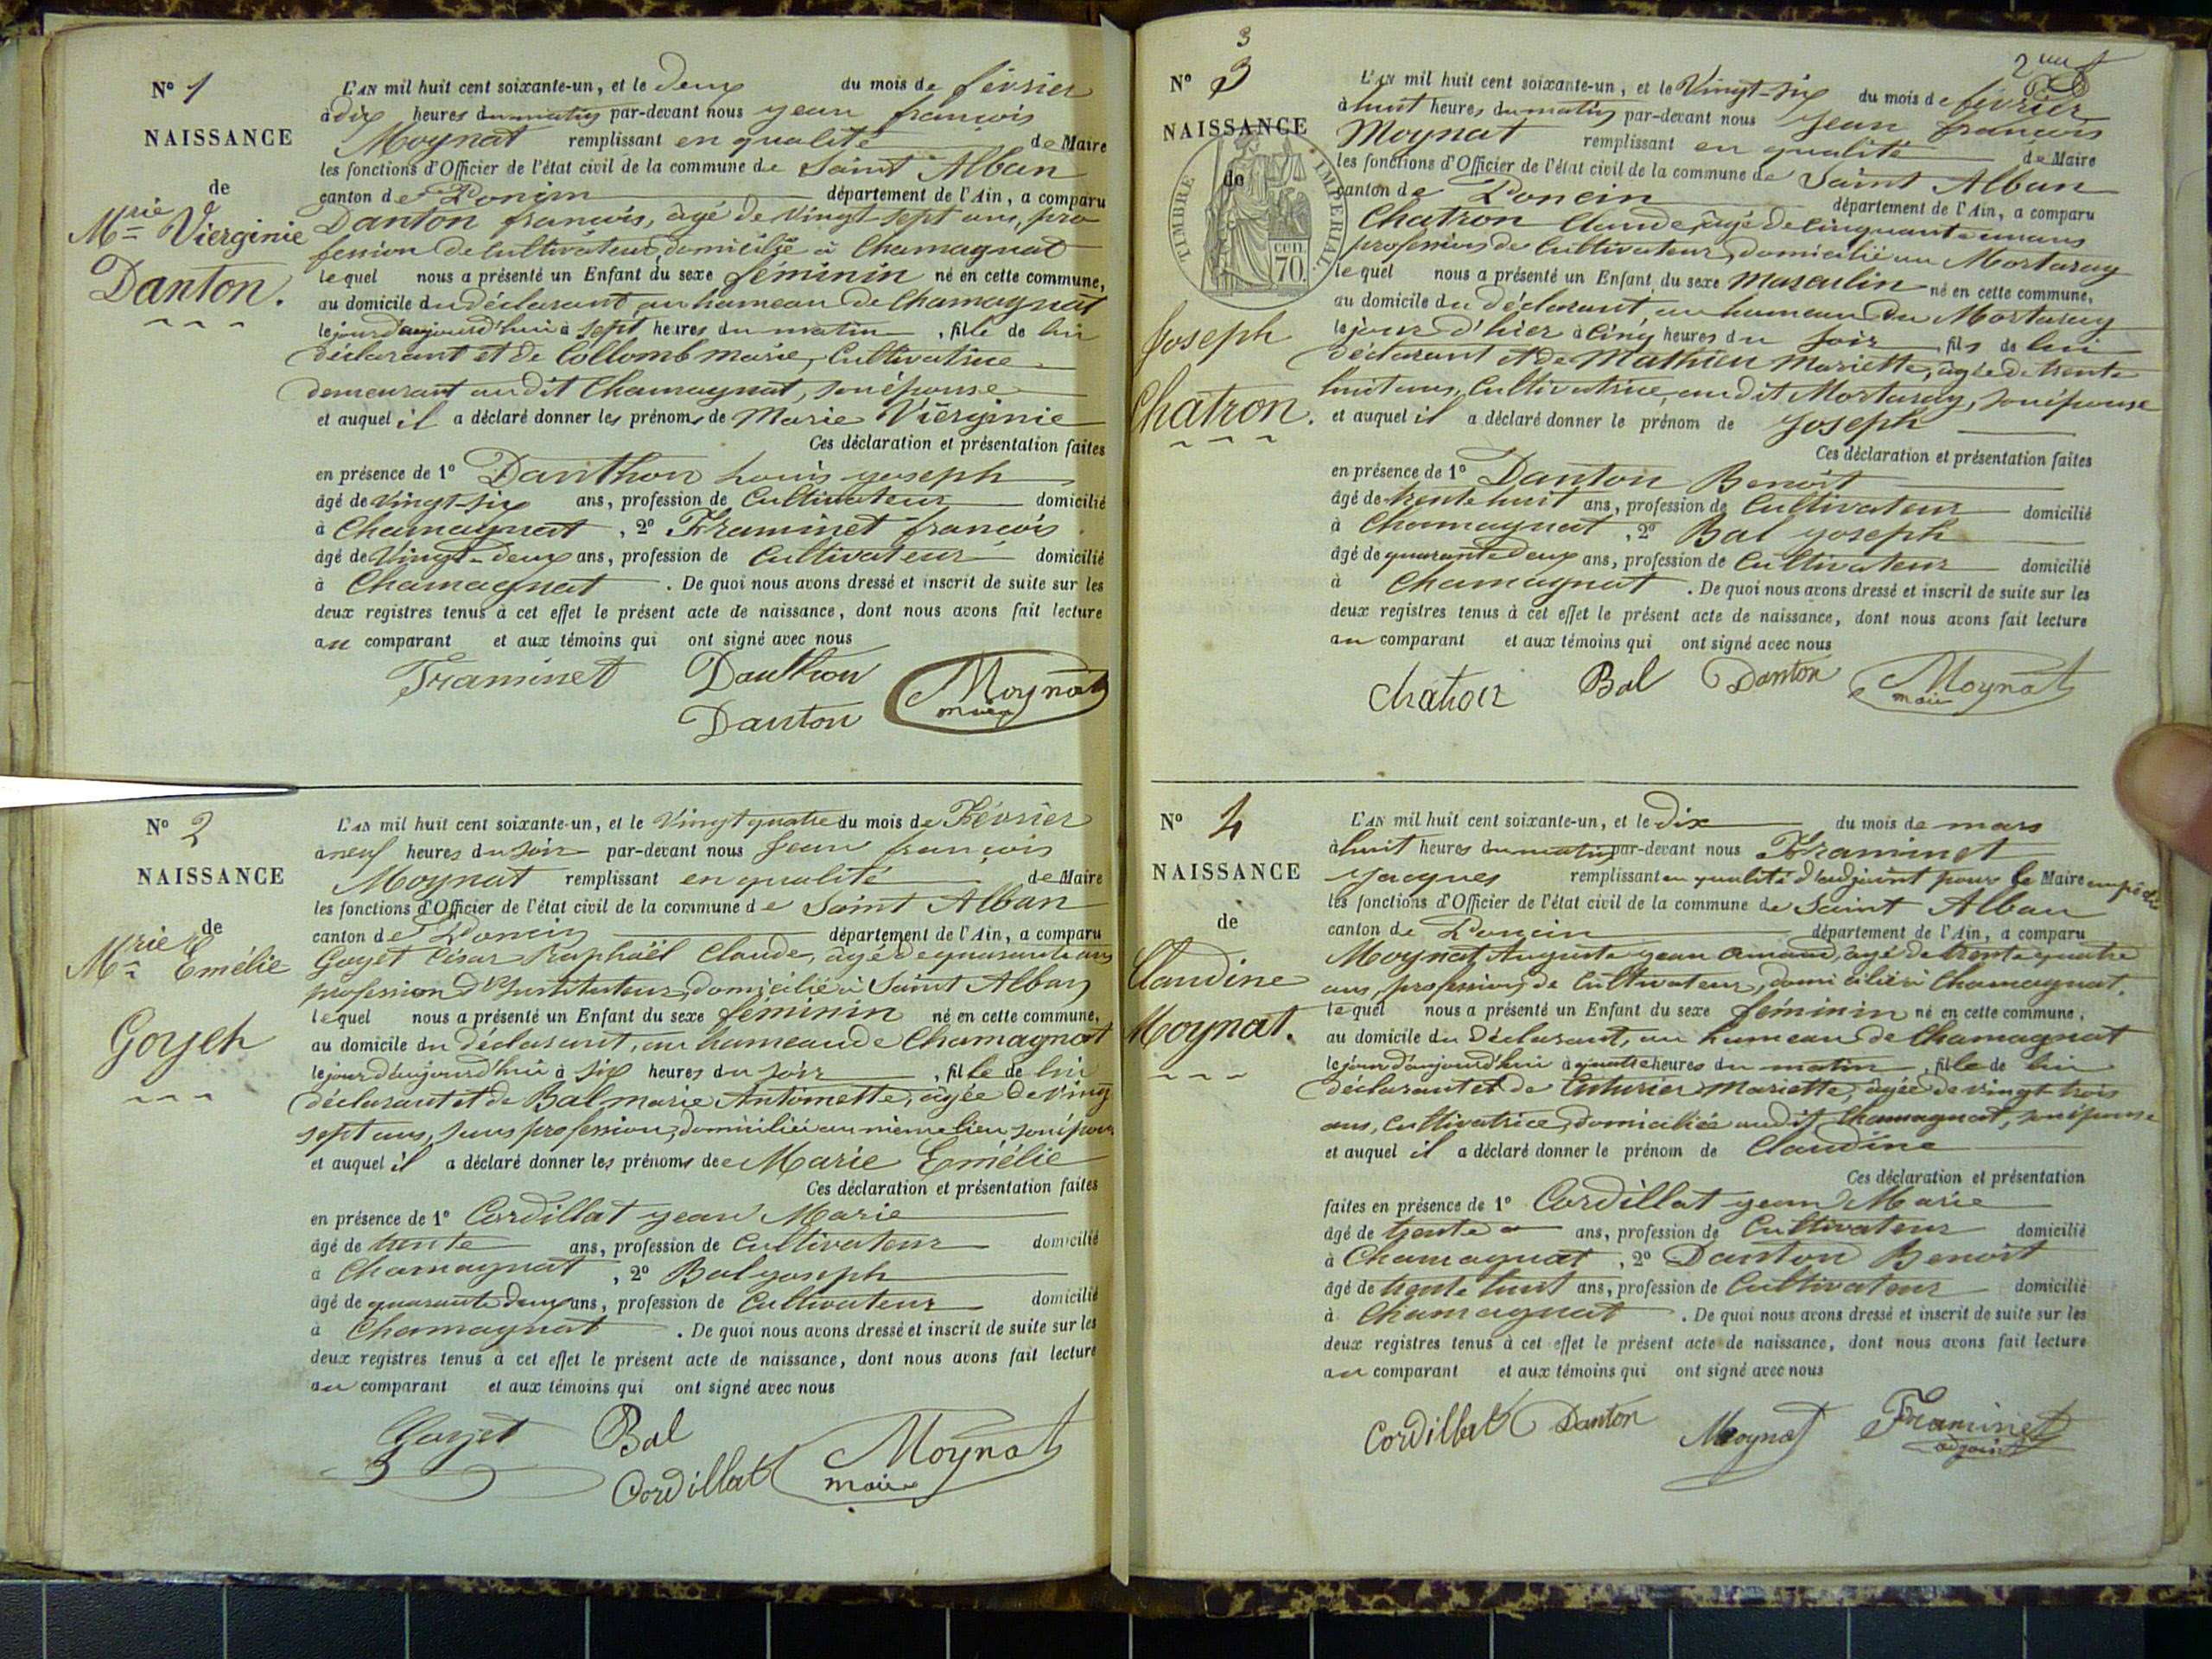 N° 1
NAISSANCE
de
Mrie Vierginie
Danton.
L'AN mil huit cent soixante-un, et le deux du mois de février
à dix heures du matin par-devant nous jean françois
Moynat remplissant en qualité de Maire
les fonctions d'Officier de l'état civil de la commune de Saint Alban
canton de Poncin département de l'Ain, a comparu
Danton françois, âgé de vingt sept ans, pro
fession de Cultivateur, domicilié à Chamagnat
lequel nous a présenté un Enfant du sexe féminin né en cette commune,
au domicile du déclarant, au hameau de Chamagnat
le jour d'aujourd'hui à sept heures du matin, fille de lui
déclarant et de Collomb marie, Cultivatrice
demeurant au dit Chamagnat, son épouse
et auquel il a déclaré donner les prénoms de Marie Vierginie
Ces déclaration et présentation faites
en présence de 1° Danthon Louis yoseph
âgé de vingt-six ans, profession de Cultivateur domicilié
à Chamagnat, 2° Framinet françois
âgé de vingt-deux ans, profession de Cultivateur domicilié
à Chamagnat. De quoi nous avons dressé et inscrit de suite sur les
deux registres tenus à cet effet le présent acte de naissance, dont nous avons fait lecture
au comparant et aux témoins qui ont signé avec nous
Framinet Danthon Moynat
Danton maire
N° 2
NAISSANCE
de
Mrie Emélie
Goyet
L'AN mil huit cent soixante-un, et le Vingt quatre du mois de Février
à neuf heures du soir par-devant nous Jean françois
Moynat remplissant en qualité de Maire
les fonctions d'Officier de l'état civil de la commune de Saint Alban
canton de Poncin département de l'Ain, a comparu
Goyet César Raphaël Claude, âgé de quarante ans
profession d'Instituteur, domicilié à Saint Alban
lequel nous a présenté un Enfant du sexe féminin né en cette commune,
au domicile du déclarant, au hameau de Chamagnat
le jour d'aujourd'hui à six heures du soir, fille de lui
déclarant et de Bal marie Antoinette, âgée de vingt
sept ans, sans profession, domiciliée au même lieu son épouse
et auquel il a déclaré donner les prénoms de Marie Emélie
Ces déclaration et présentation faites
en présence de 1° Cordillat yean Marie
âgé de trente ans, profession de Cultivateur domicilié
à Chamagnat, 2° Bal yoseph
âgé de quarante deux ans, profession de Cultivateur domicilié
à Chamagnat. De quoi nous avons dressé et inscrit de suite sur les
deux registres tenus à cet effet le présent acte de naissance, dont nous avons fait lecture
au comparant et aux témoins qui ont signé avec nous
Goyet Bal Moynat
Cordillat maire
3
N° 3
NAISSANCE
de
TIMBRE IMPERIAL
cen
70.
Joseph
Chatron.
L'AN mil huit cent soixante-un, et le Vingt-six du mois de février
à huit heures du matin par-devant nous yean françois
Moynat remplissant en qualité de Maire
les fonctions d'Officier de l'état civil de la commune de Saint Alban
canton de Poncin département de l'Ain, a comparu
Chatron Claude, âgé de cinquante un ans
profession de Cultivateur, domicilié au Mortaray
lequel nous a présenté un Enfant du sexe Masculin né en cette commune,
au domicile du déclarant, au hameau du Mortaray
le jour d'hier à cinq heures du soir, fils de lui
déclarant et de Mathieu Mariette, âgée de trente
huit ans, Cultivatrice, au dit Mortaray, son épouse
et auquel il a déclaré donner le prénom de Joseph
Ces déclaration et présentation faites
en présence de 1° Danton Benoît
âgé de trente huit ans, profession de Cultivateur domicilié
à Chamagnat, 2° Bal yoseph
âgé de quarante deux ans, profession de Cultivateur domicilié
à Chamagnat. De quoi nous avons dressé et inscrit de suite sur les
deux registres tenus à cet effet le présent acte de naissance, dont nous avons fait lecture
au comparant et aux témoins qui ont signé avec nous
Chatron Bal Danton Moynat
maire
N° 4
NAISSANCE
de
Claudine
Moynat.
L'AN mil huit cent soixante-un, et le dix du mois de mars
à huit heures du matin par-devant nous Framinet
yacques remplissant en qualité d'adjoint pour le Maire empêché
les fonctions d'Officier de l'état civil de la commune de Saint Alban
canton de Poncin département de l'Ain, a comparu
Moynat Auguste yean Armand, âgé de trente quatre
ans, profession de Cultivateur, domicilié à Chamagnat.
lequel nous a présenté un Enfant du sexe féminin né en cette commune,
au domicile du Déclarant, au hameau de Chamagnat
le jour d'aujourd'hui à quatre heures du matin, fille de lui
déclarant et de Cuturier Mariette, âgée de vingt trois
ans, Cultivatrice, domiciliée au dit Chamagnat, son épouse
et auquel il a déclaré donner le prénom de Claudine
Ces déclaration et présentation
faites en présence de 1° Cordillat yean Marie
âgé de trente ans, profession de Cultivateur domicilié
à Chamagnat, 2° Danton Benoît
âgé de trente huit ans, profession de Cultivateur domicilié
à Chamagnat. De quoi nous avons dressé et inscrit de suite sur les
deux registres tenus à cet effet le présent acte de naissance, dont nous avons fait lecture
au comparant et aux témoins qui ont signé avec nous
Cordillat Danton Moynat Framinet
adjoint